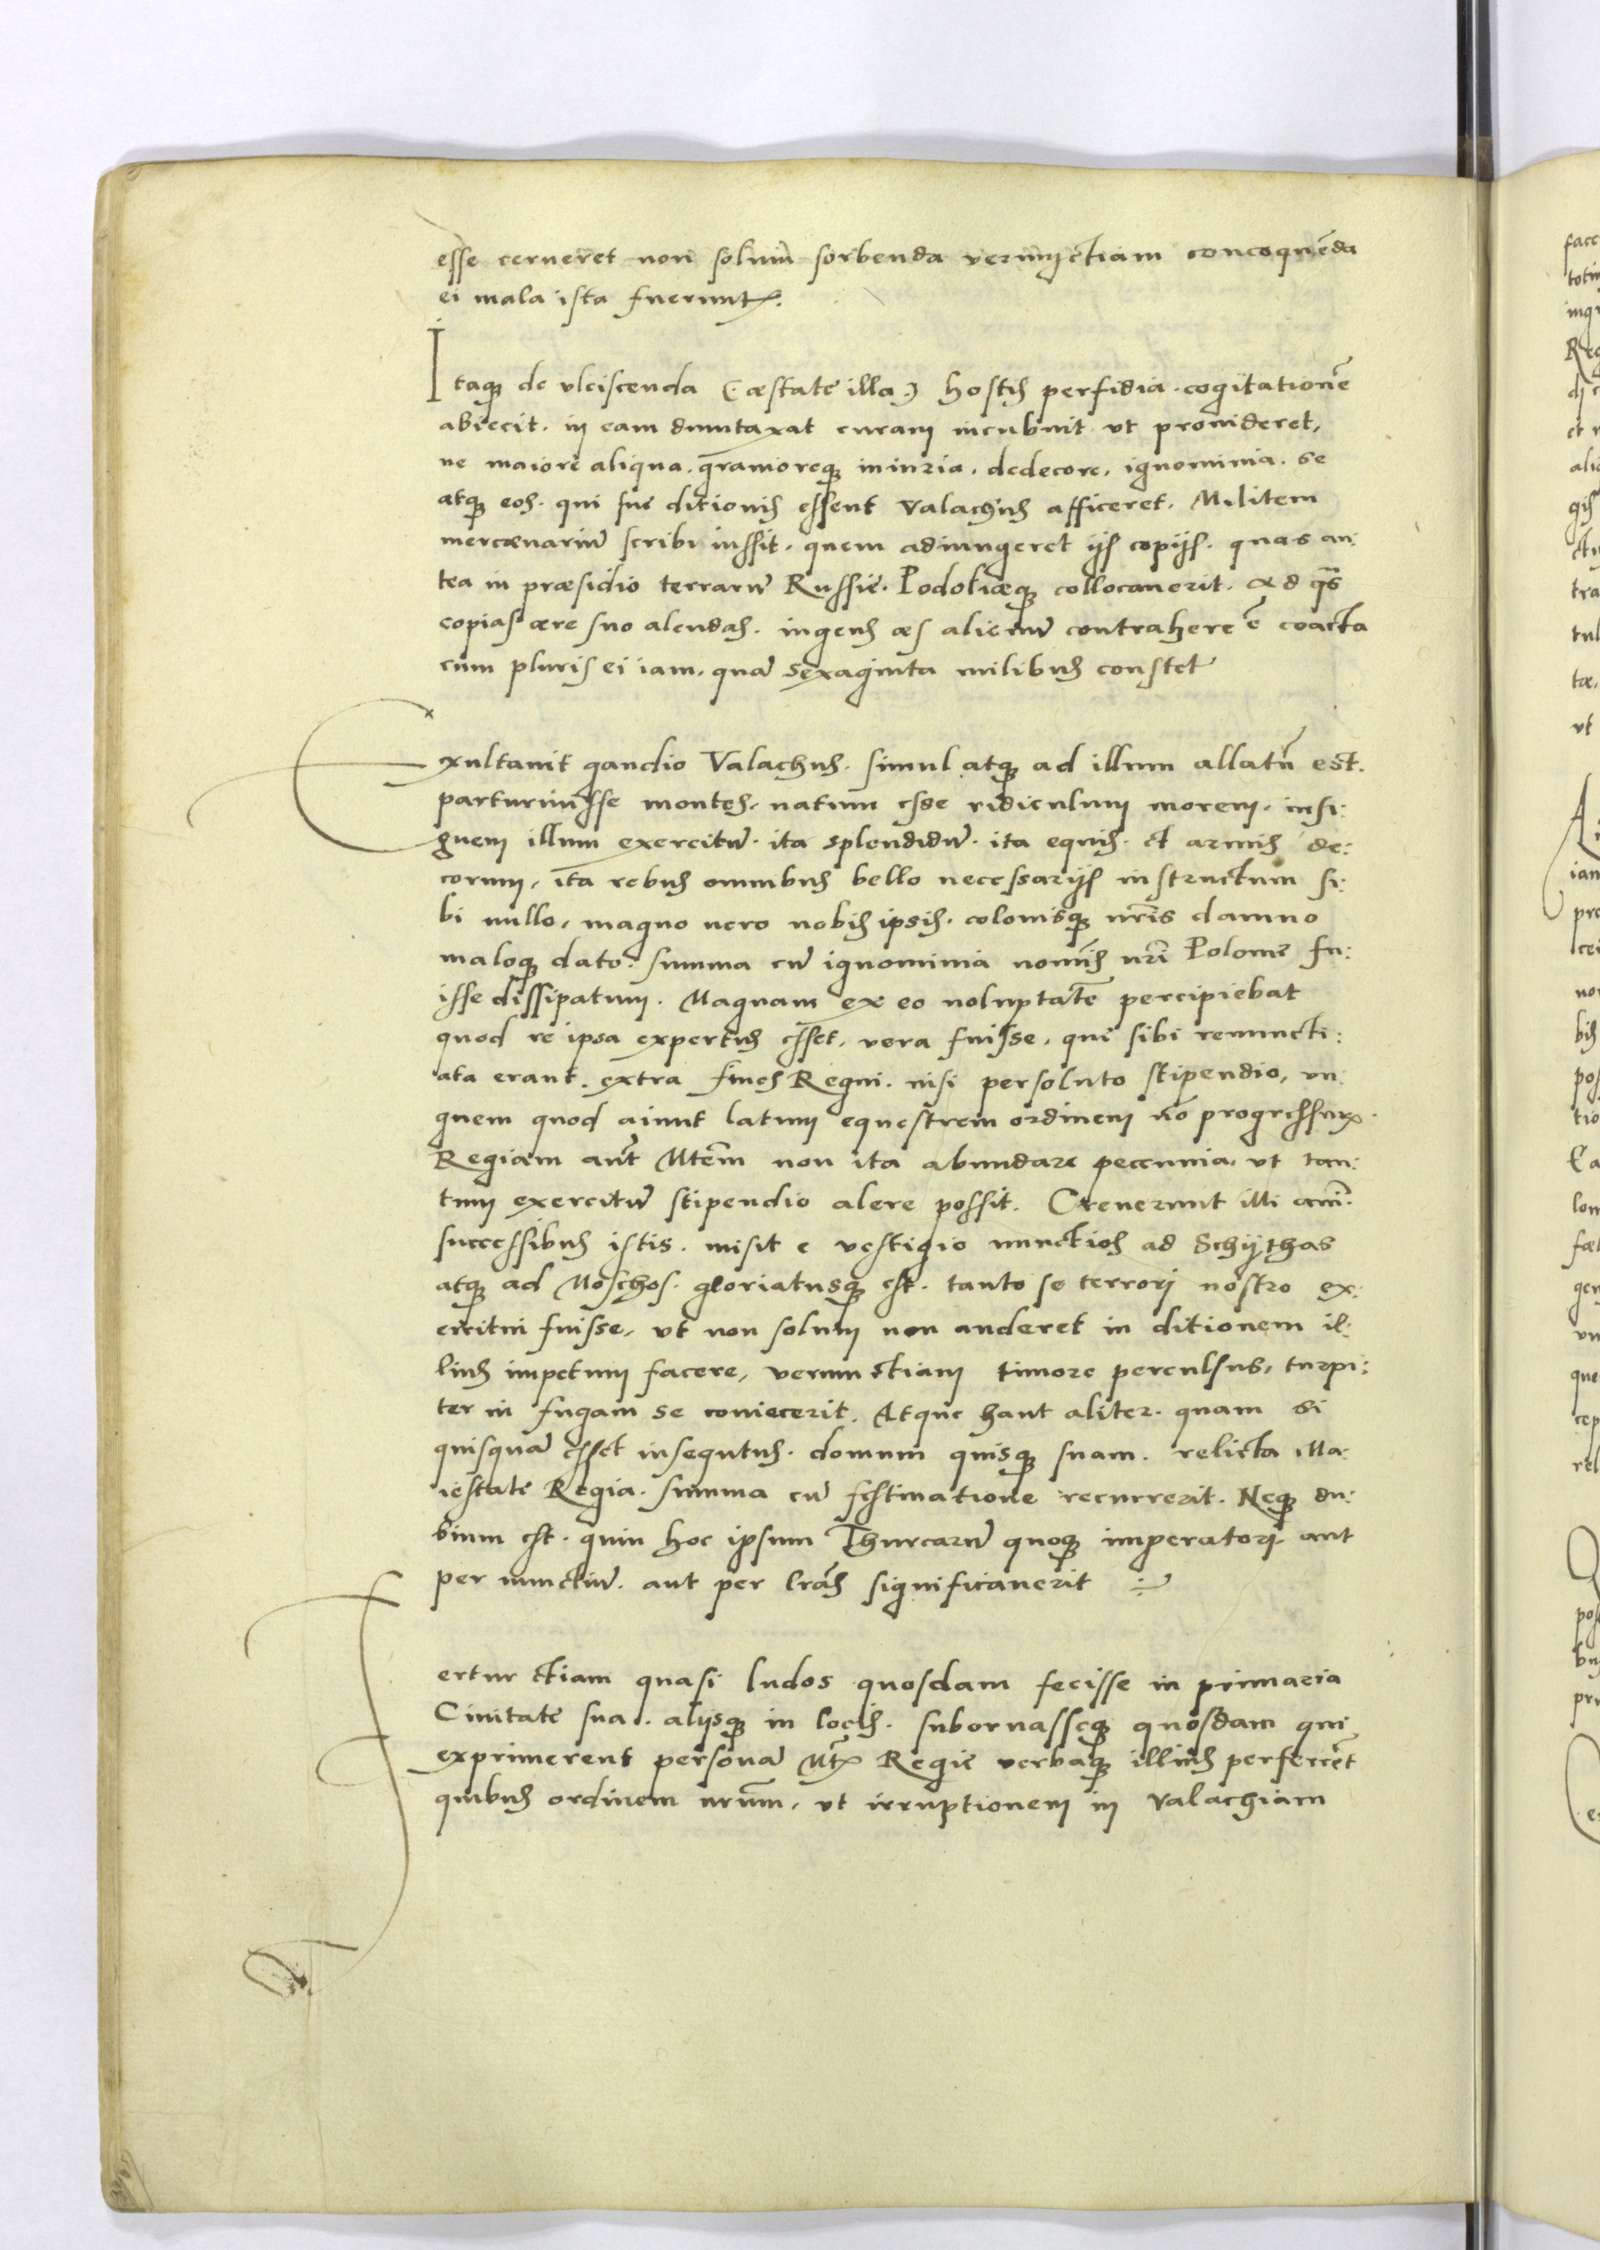 esse cerneret non solum sorbenda verum etiam concoquēda
ei mala ista fuerunt.
Itaqꝫ de vlciscenda (æstate illa) hostis perfidia. cogitationē
abiecit. in eam dumtaxat curam incubuit vt prouideret,
ne maiore aliqua. grauioreqꝫ iniuria. dedecore. ignominia. se
atqꝫ eos. qui suę ditionis essent Valachus afficeret. Militem
mercænariū scribi iussit. quem adiungeret ijs copijs. quas an:
tea in præsidio terrarū Russię. Podoliæqꝫ collocauerit. Ad qs̄
copias ære suo alendas. ingens æs alienū contrahere ē coacta
cum pluris ei iam. quā sexaginta milibus constet
Exultauit gaudio Valachus. simul atqꝫ ad illum allatū est.
parturiuisse montes. natum esse ridiculum morem. insi:
gnem illum exercitū. ita splendidū. ita equis. et armis de:
corum, ita rebus omnibus bello necessarijs instructum si:
bi nullo, magno uero nobis ipsis. colonisqꝫ nrīs damno
maloqꝫ dato. summa cū ignominia nomīs nrī Polonię fu:
isse dissipatum. Magnam ex eo uoluptatē percipiebat
quod re ipsa expertus esset. vera fuisse, quę sibi renuncti:
ata erant. extra fines Regni. nisi persoluto stipendio, un:
guem quod aiunt latum equestrem ordinem nō progressurū.
Regiam aūt Mtēm non ita abundare peccunia. ut tan:
tum exercitū stipendio alere possit. Creuerunt illi animi
successibus istis. misit e vestigio nunctios ad Schÿthas
atqꝫ ad Moschos. gloriatusqꝫ est. tanto se terrori nostro ex:
ercitui fuisse, vt non solum non auderet in ditionem il:
lius impetum facere, verum etiam timore perculsus, turpi:
ter in fugam se coniecerit. Atque haut aliter. quam si
quisquā esset insequtus. domum quisqꝫ suam. relicta Ma:
iestate Regia. summa cū festinatione recurrerit. Neqꝫ du:
bium est. quin hoc ipsum Thurcarū quoqꝫ imperatori aut
per nunctiū. aut per lrās significauerit
Fertur etiam quasi ludos quosdam fecisse in primaria
Ciuitate sua. alijsqꝫ in locis. subornasseqꝫ quosdam qui
exprimerent personā Mtis Regię verbaqꝫ illius perferrēt
quibus ordinem nrūm, vt irruptionem in Valachiam